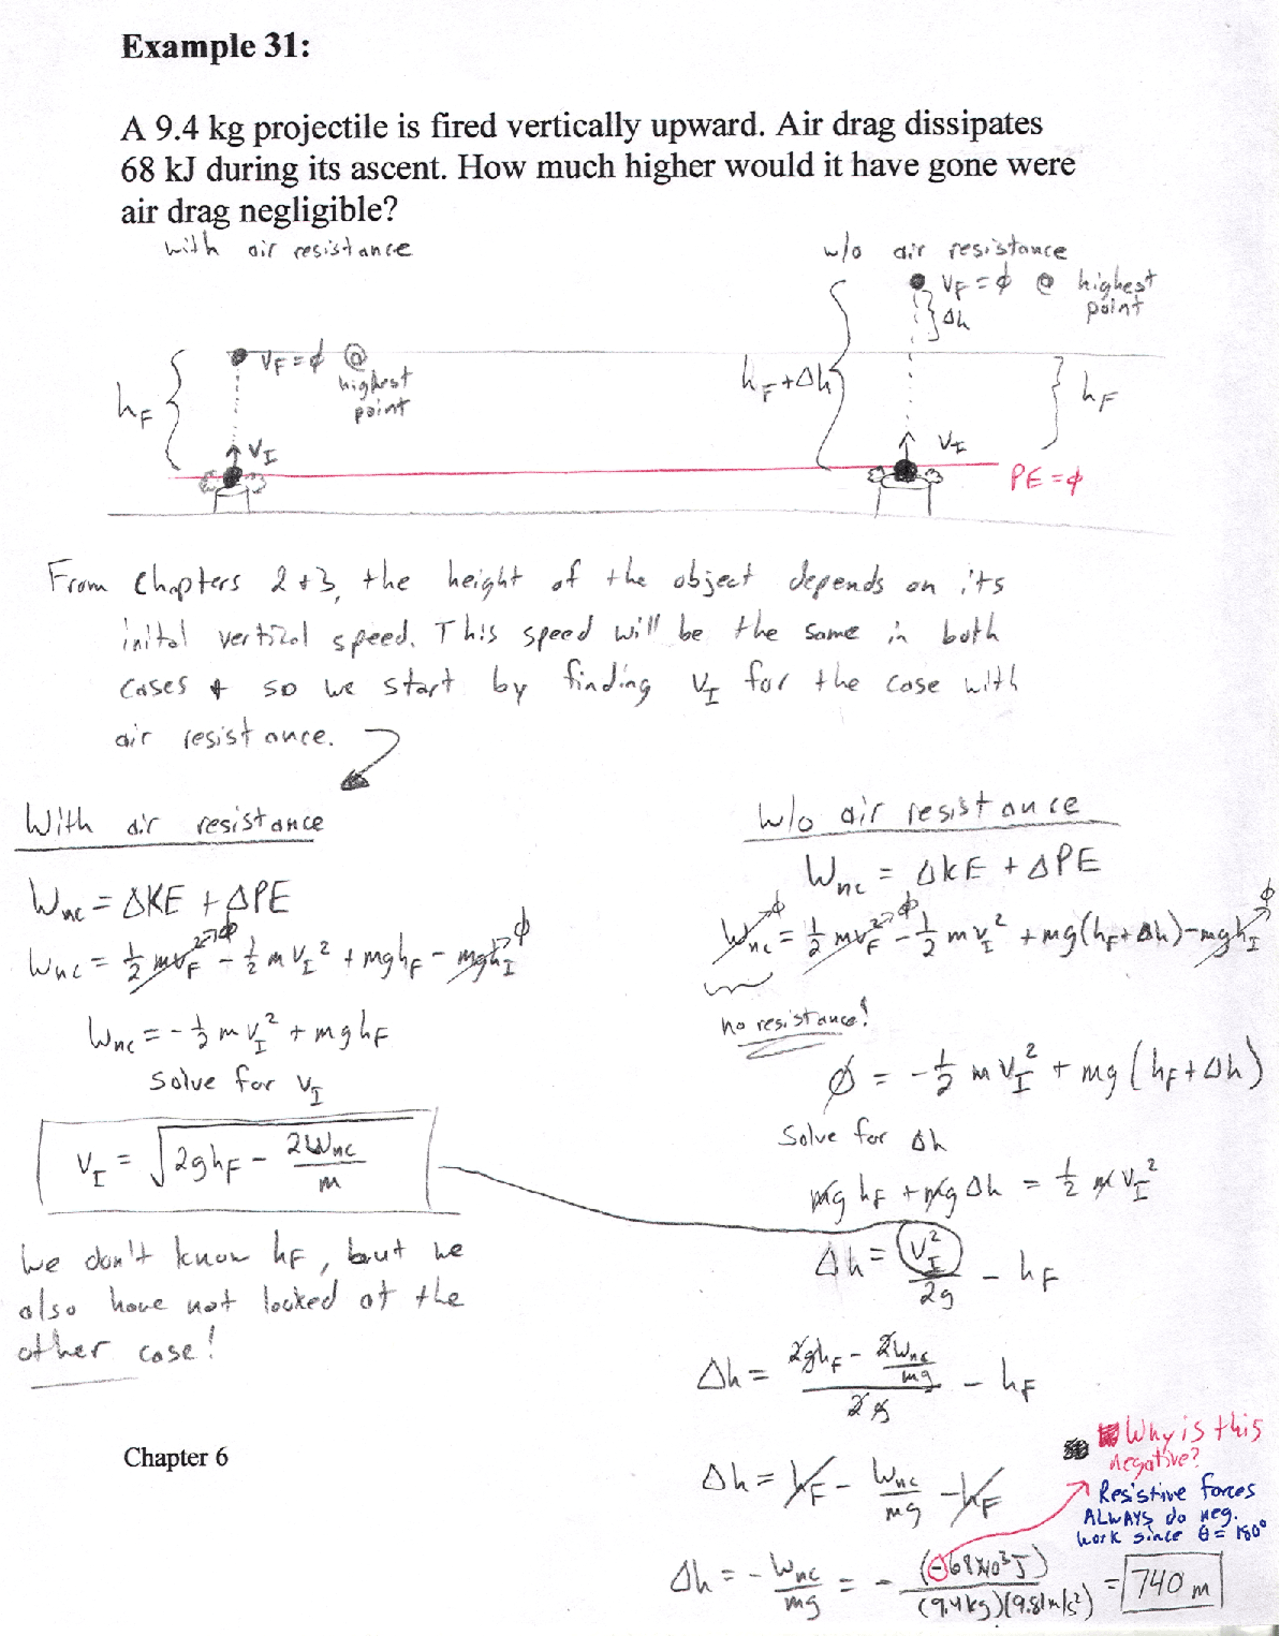 Example 31:
A 9.4 kg projectile is fired vertically upward. Air drag dissipates
68 kJ during its ascent. How much higher would it have gone were
air drag negligible?
with air resistance
w/o air resistance
V_F = ϕ @ highest
point
Δh
V_F = ϕ @
highest
point
h_F
h_F + Δh
h_F
V_I
V_I
PE = ϕ
From Chapters 2 + 3, the height of the object depends on its
inital vertical speed. This speed will be the same in both
cases + so we start by finding V_I for the case with
air resistance.
With air resistance
W_nc = ΔKE + ΔPE
W_nc = ½ mv_F² → ϕ - ½ m V_I² + mgh_F - mgh_I → ϕ
W_nc = -½ m V_I² + mgh_F
Solve for V_I
V_I = √(2gh_F - 2W_nc/m)
We don't know h_F, but we
also have not looked at the
other case!
Chapter 6
w/o air resistance
W_nc = ΔKE + ΔPE
W_nc → ϕ = ½ mv_F² → ϕ - ½ m V_I² + mg(h_F + Δh) - mgh_I → ϕ
no resistance!
ϕ = -½ m V_I² + mg (h_F + Δh)
Solve for Δh
mg h_F + mg Δh = ½ m V_I²
Δh = V_I²/2g - h_F
Δh = (2gh_F - 2W_nc/mg)/2g - h_F
Δh = h_F - W_nc/mg - h_F
Why is this
negative?
Resistive forces
ALWAYS do neg.
work since θ = 180°
Δh = - W_nc/mg = - (-68x10³ J)/(9.4 kg)(9.81 m/s²) = 740 m